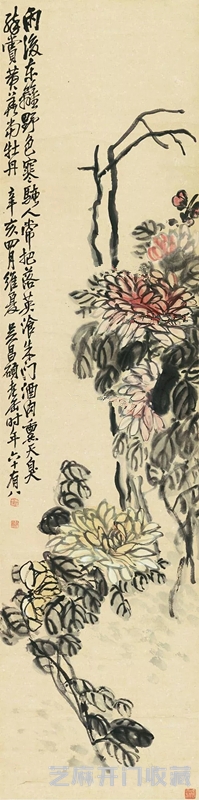 雨後东籬野色寒騷人常把落英飡朱门酒肉熏天臭
醉賞黄華當牡丹 辛亥四月維夏 吴昌碩老缶时年六十有八
芝麻开门收藏